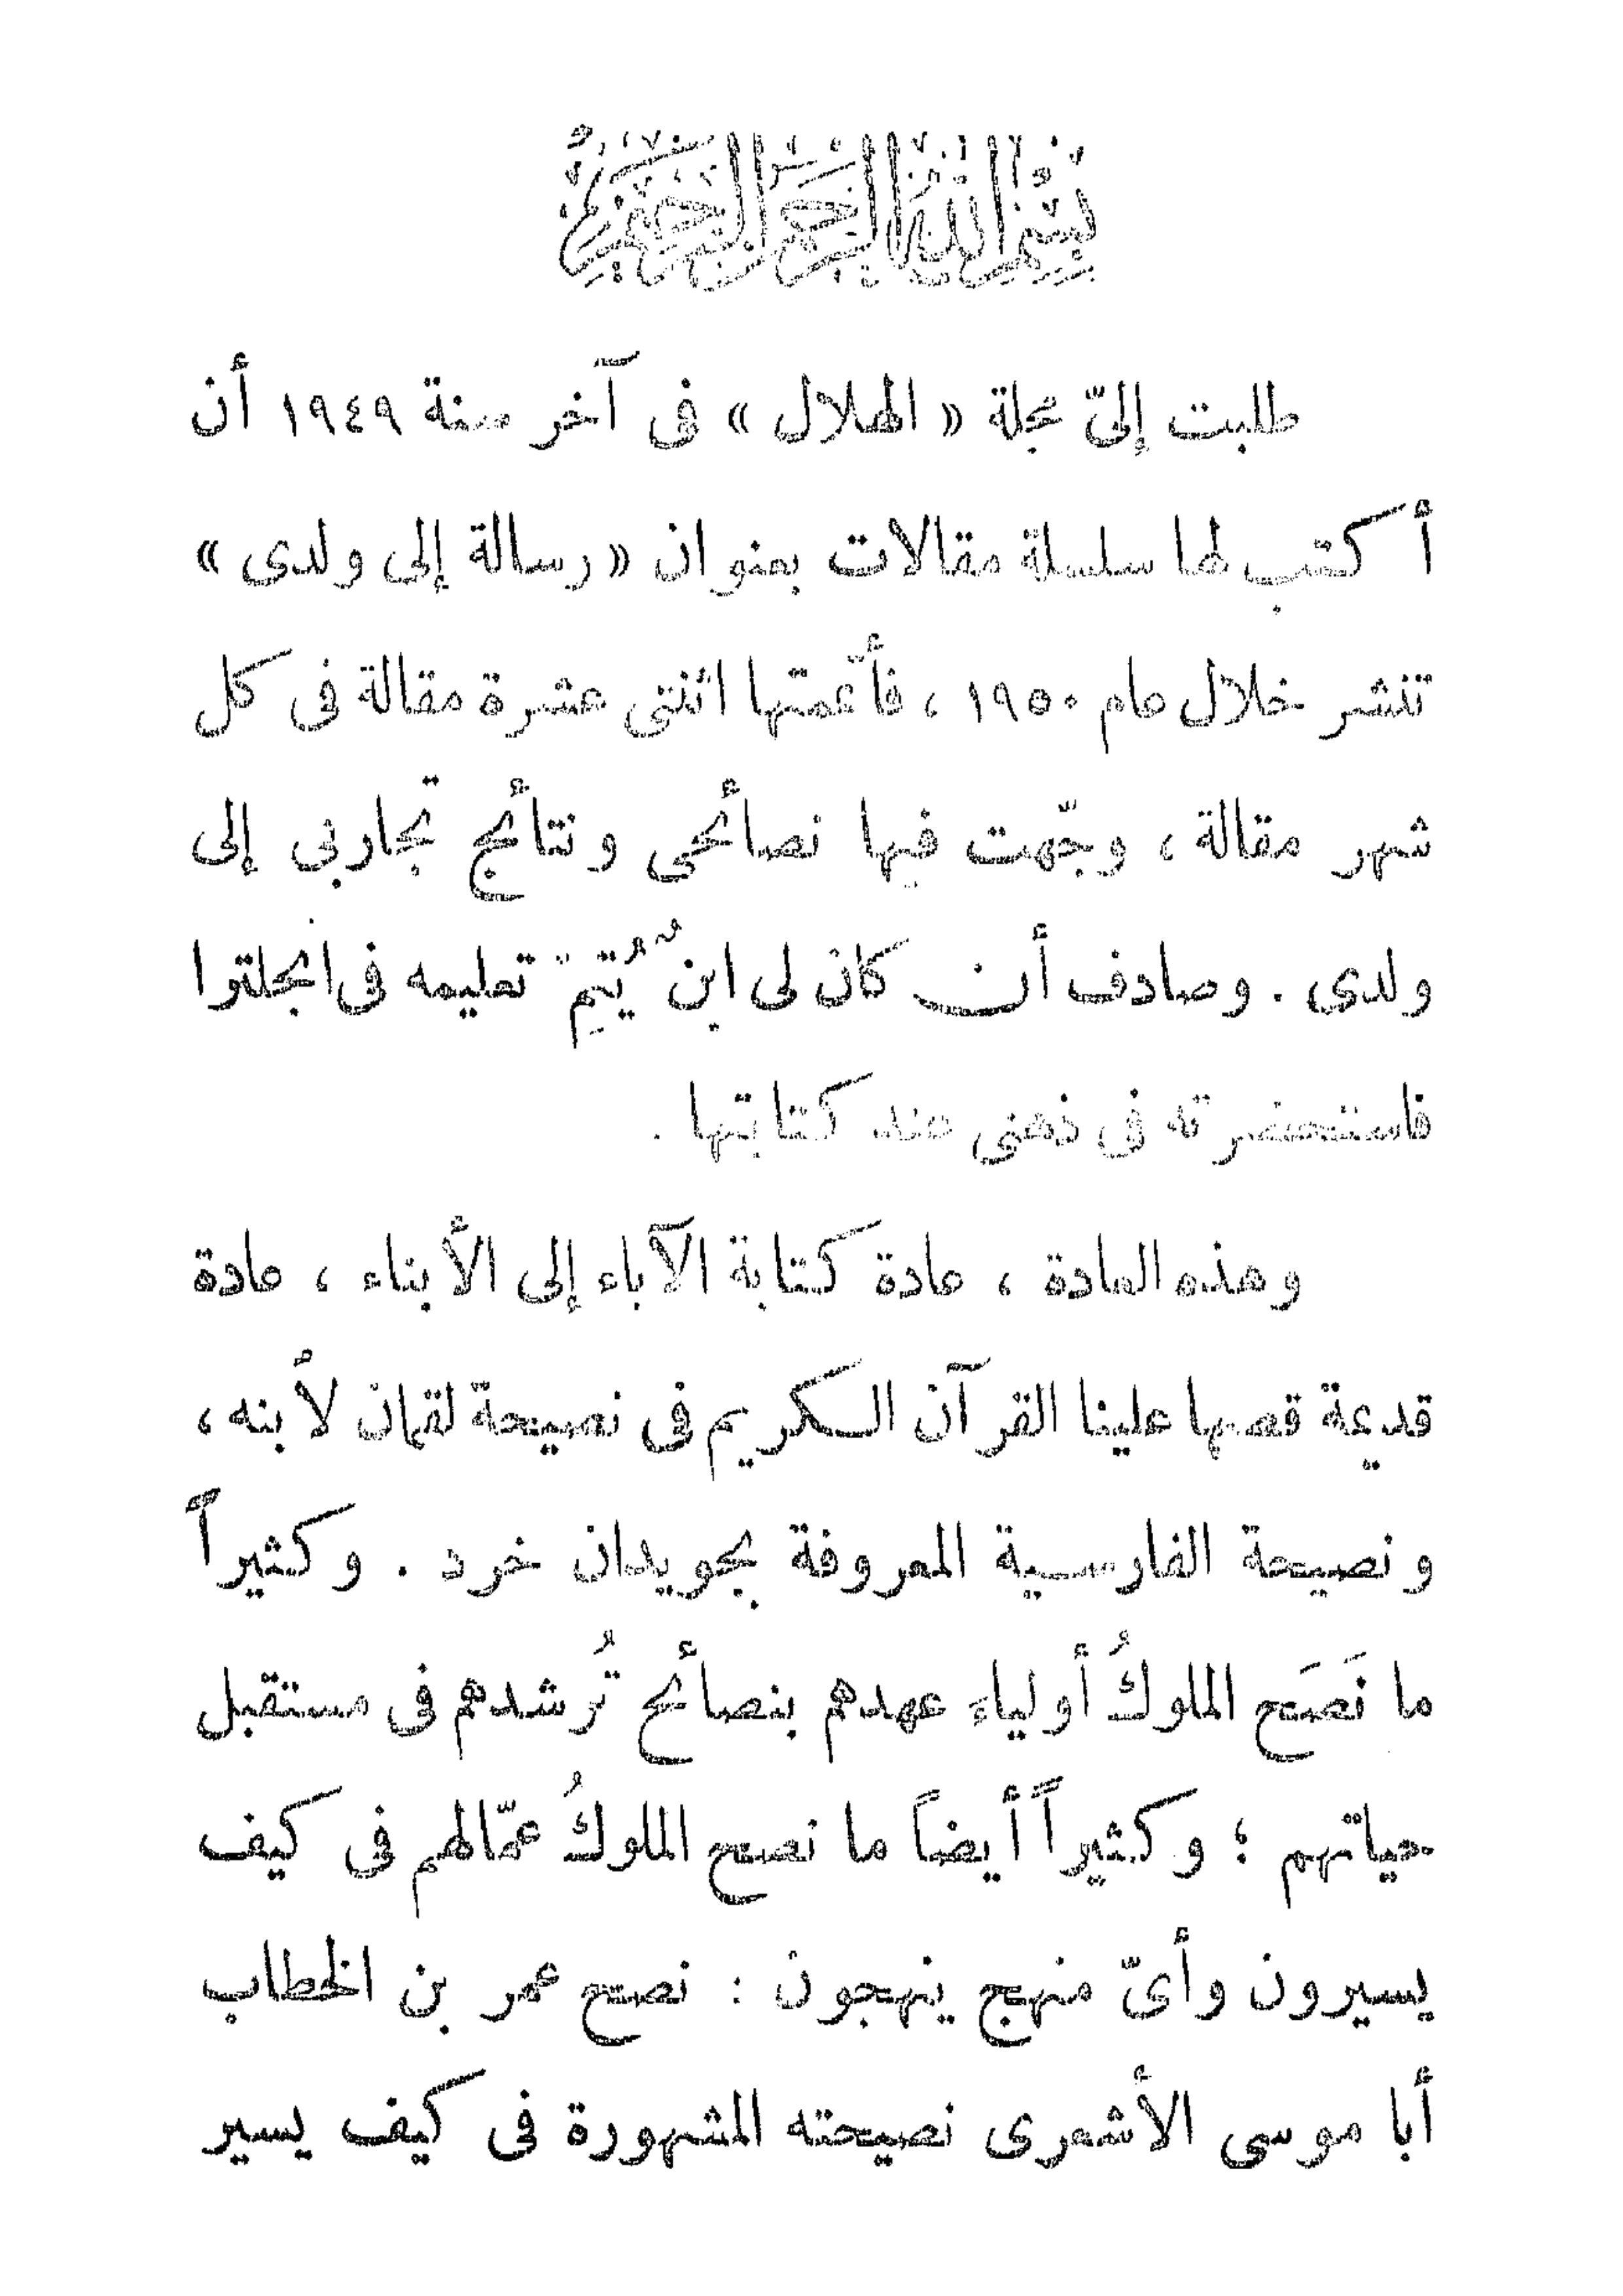 بِسْمِ اللَّهِ الرَّحْمَنِ الرَّحِيمِ
طلبت إلىّ مجلة « الهلال » فى آخر سنة ١٩٤٩ أن
أكتب لها سلسلة مقالات بعنوان « رسالة إلى ولدى »
تنشر خلال عام ١٩٥٠ ، فأتممتها اثنتى عشرة مقالة فى كل
شهر مقالة ، وجّهت فيها نصائحى ونتائج تجاربى إلى
ولدى . وصادف أن كان لى ابنٌ يُتِمّ تعليمه فى انجلترا
فاستحضرته فى ذهنى عند كتابتها .
وهذه العادة ، عادة كتابة الآباء إلى الأبناء ، عادة
قديمة قصها علينا القرآن الكريم فى نصيحة لقمان لأبنه ،
ونصيحة الفارسية المعروفة بجويدان خرد . وكثيراً
ما نَصَح الملوكُ أولياء عهدهم بنصائح تُرشدهم فى مستقبل
حياتهم ؛ وكثيراً أيضاً ما نصح الملوكُ عمّالهم فى كيف
يسيرون وأىّ منهج ينهجون : نصح عمر بن الخطاب
أبا موسى الأشعرى نصيحته المشهورة فى كيف يسير